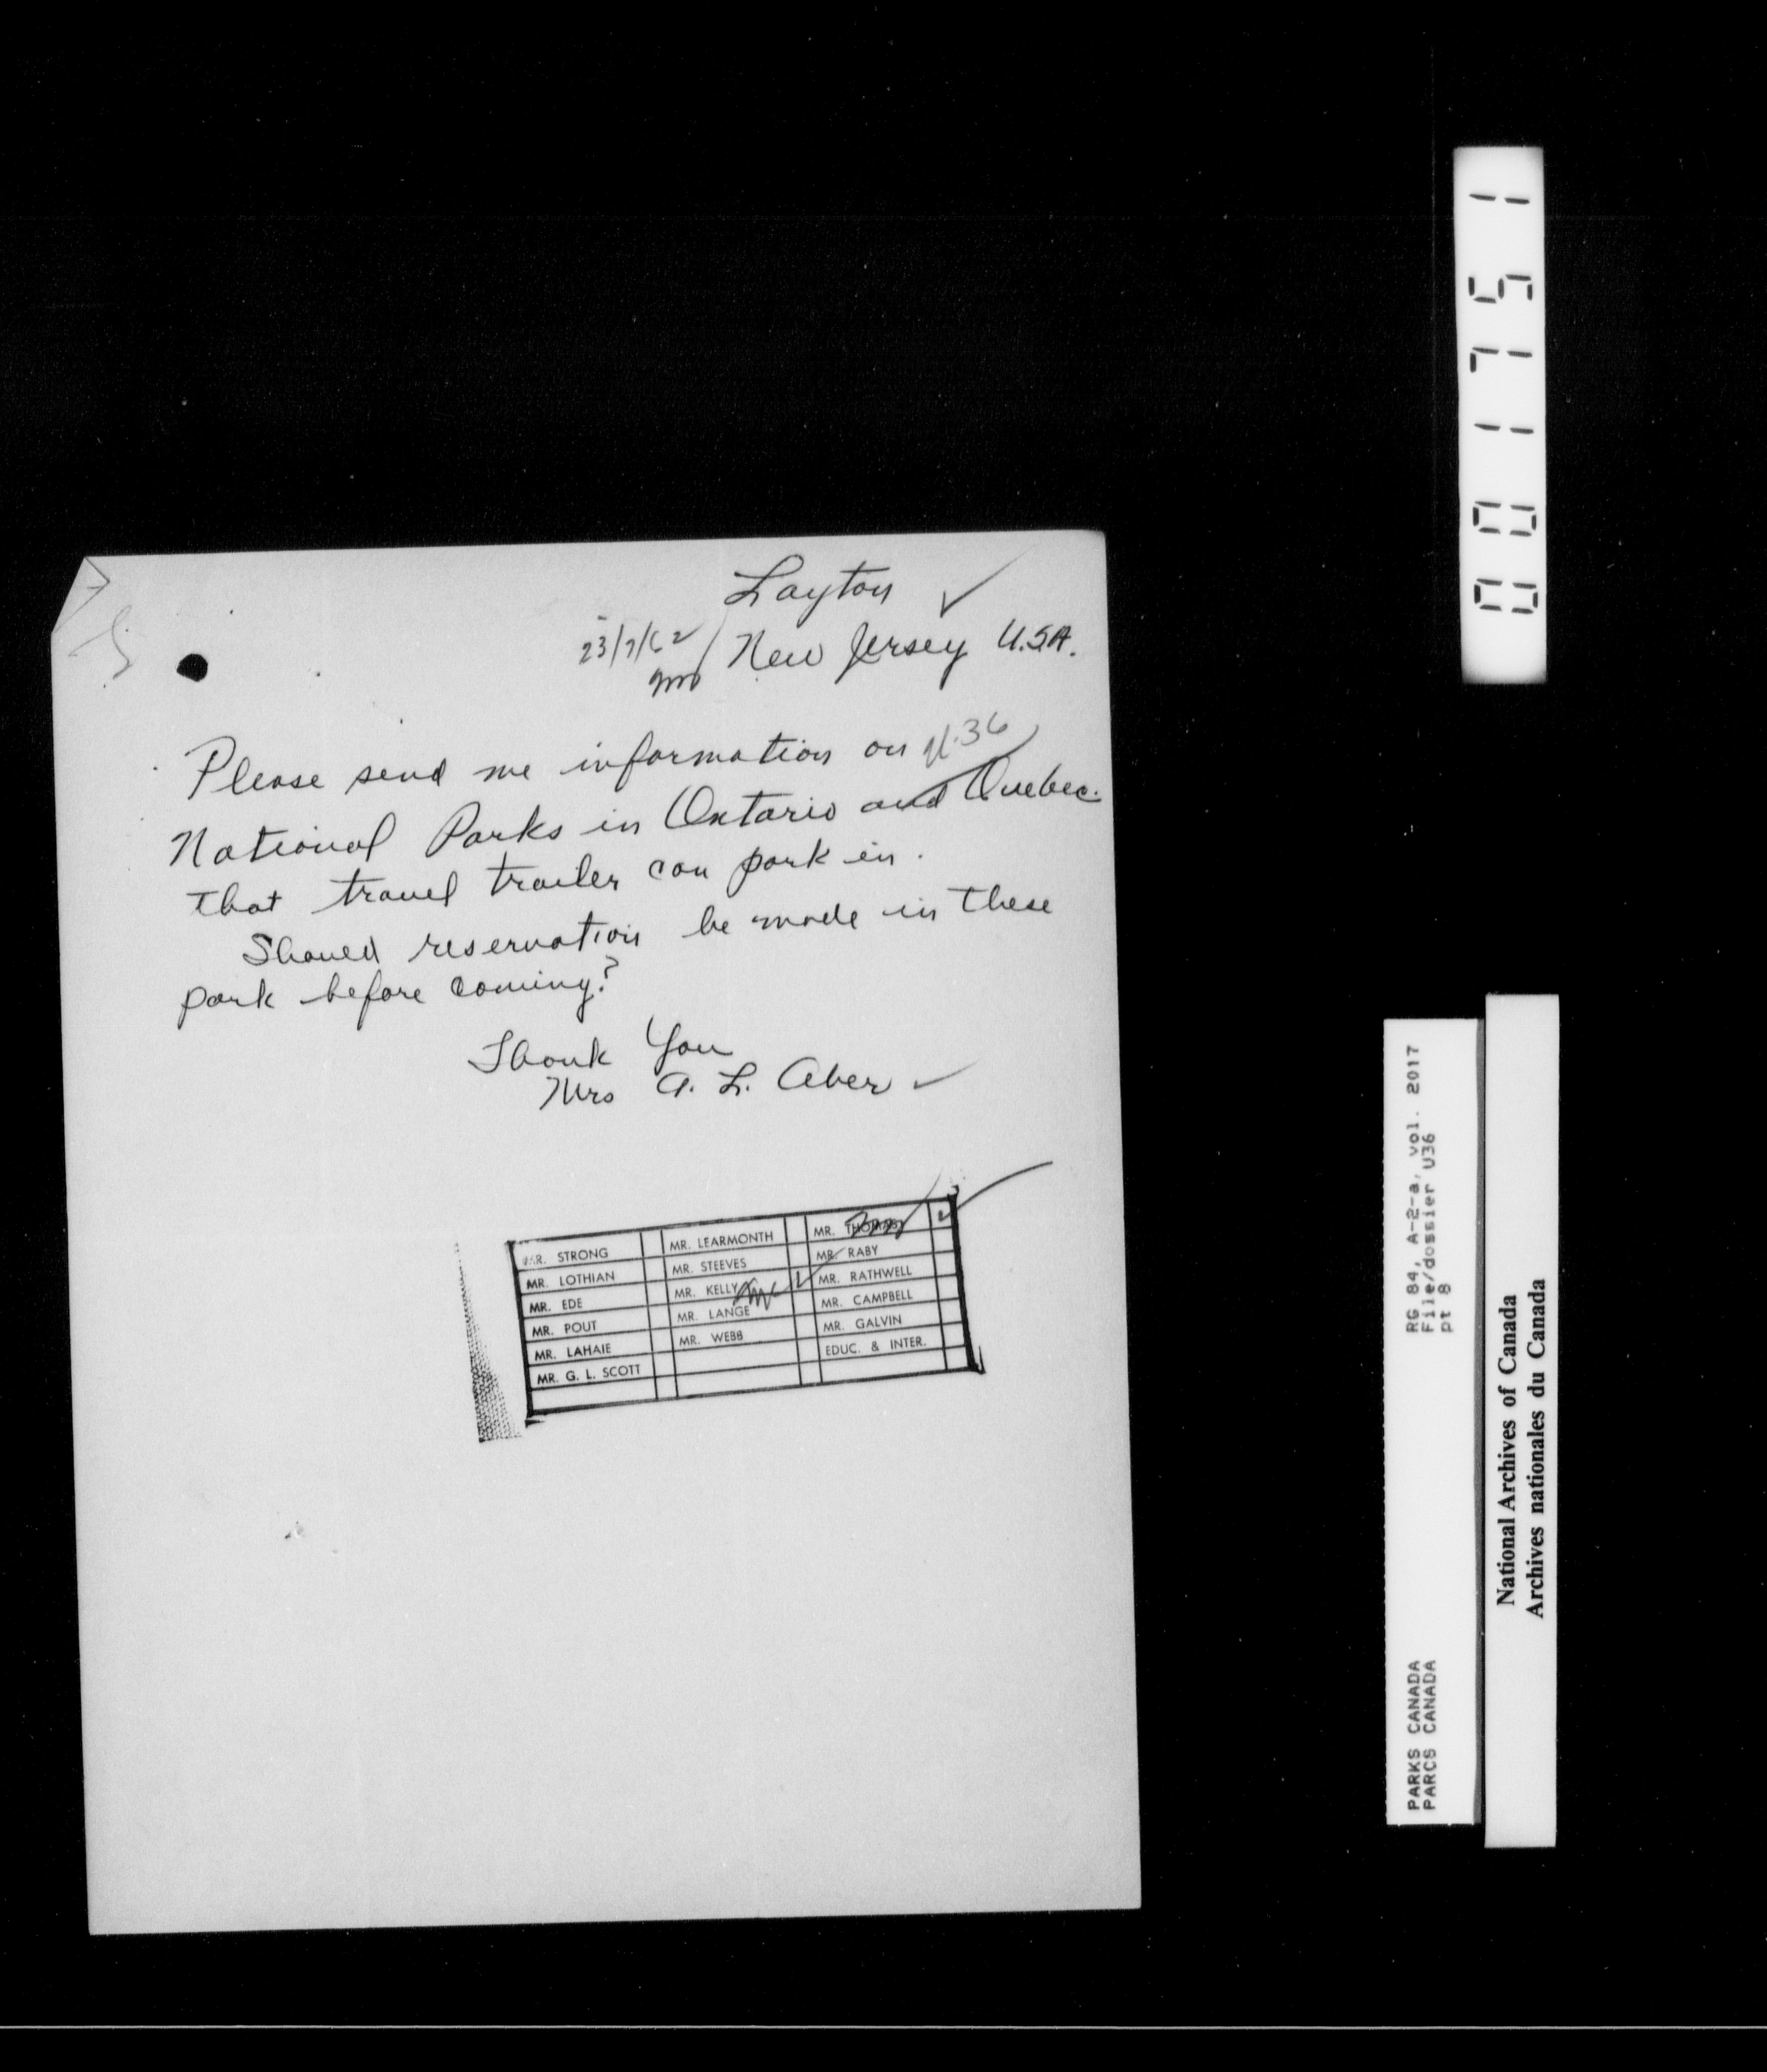 Layton
23/7/62
New Jersey U.S.A.
U.36
Please send me information on
National Parks in Ontario and Quebec.
that travel trailer can park in.
Should reservation be made in these
park before coming?
Thank You
Mrs A. L. Aber
MR. STRONG MR. LEARMONTH MR. THOMAS
MR. LOTHIAN MR. STEEVES MR. RABY
MR. EDE MR. KELLY MR. RATHWELL
MR. POUT MR. LANGE MR. CAMPBELL
MR. LAHAIE MR. WEBB MR. GALVIN
MR. G. L. SCOTT EDUC. & INTER.
001751
PARKS CANADA RG 84, A-2-a, vol. 2017
PARCS CANADA File/dossier U36
pt 8
National Archives of Canada
Archives nationales du Canada